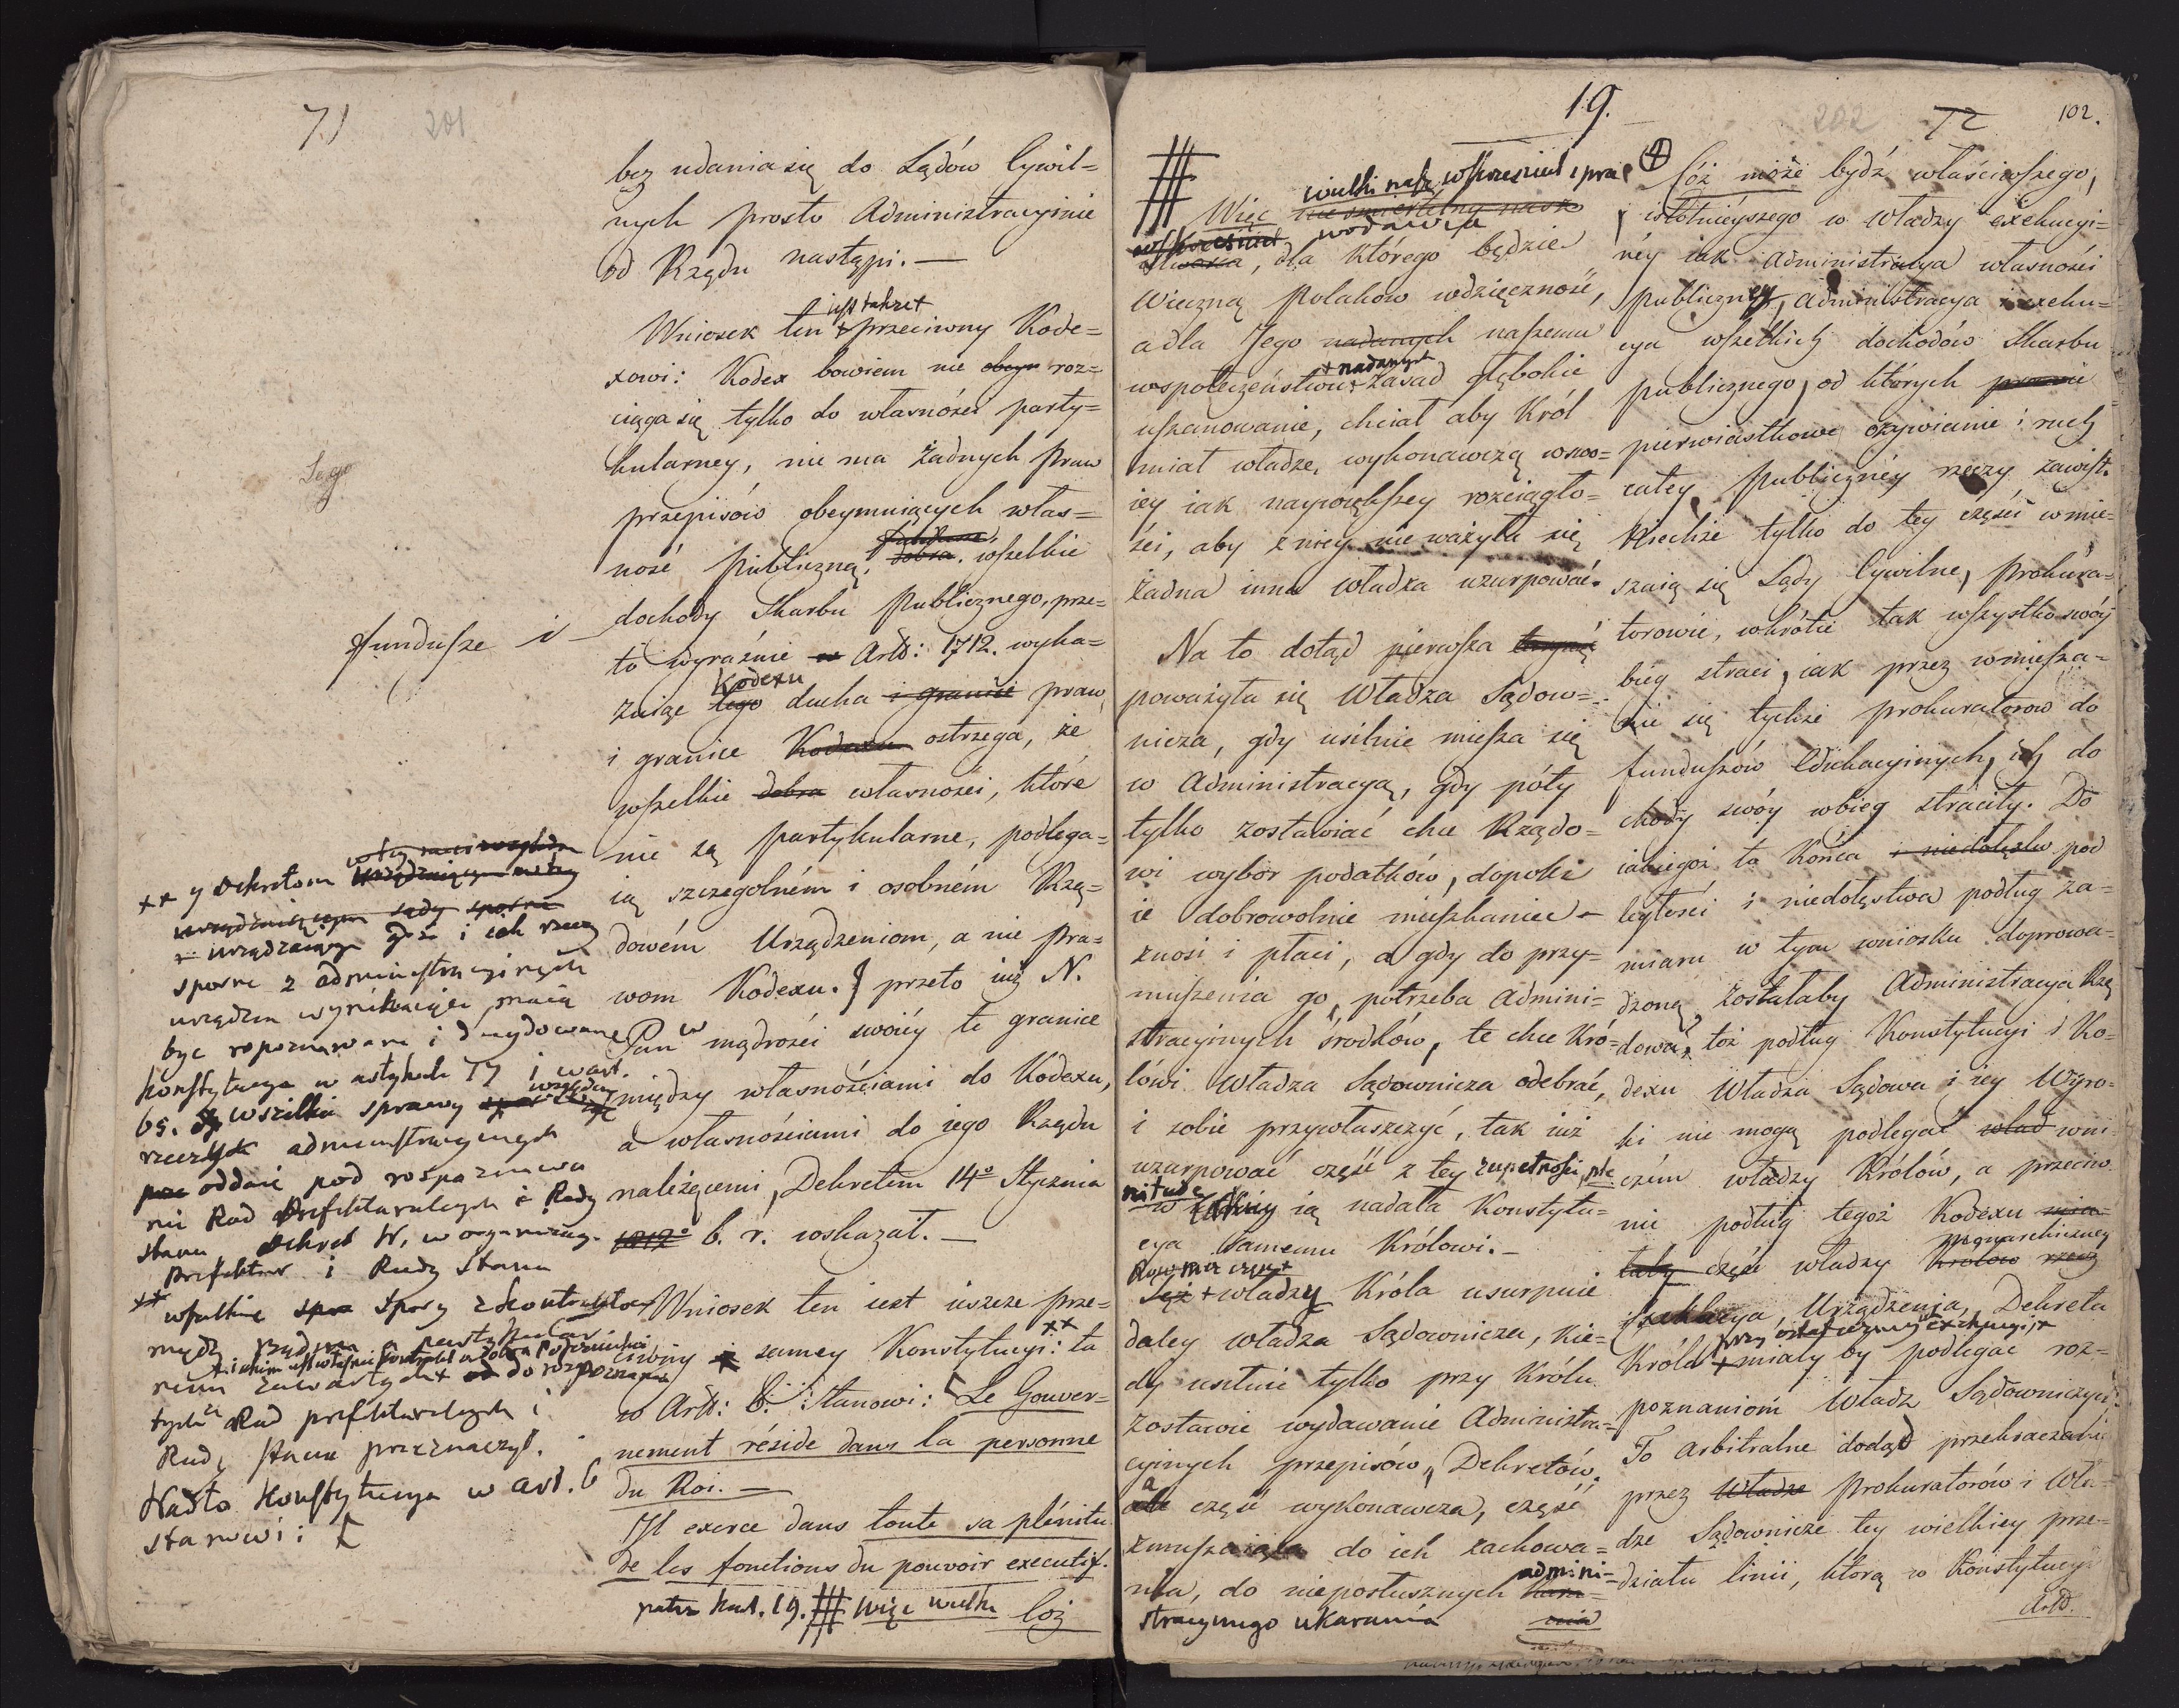 71 201
bez udania się do Sądów Cywil=
nych prosto Administracyinie
od Rządu nastąpi. —
iest takze +
Wniosek ten + przeciwny Kode=
xowi: Kodex bowiem nie obeym roz=
ciąga się tylko do własności party=
kularney, nie ma żadnych praw
przepisów obeymuiących włas=
fundusze
ność publiczną, dobra, wszelkie
dochody Skarbu Publicznego, prze=
to wyraźnie w Artt: 1712. wyka=
Kodexu
zuiąc tego ducha i granice praw
i granice Kodexu ostrzega, że
wszelkie dobra własności, które
nie są partykularne, podlega=
ią szczegolném i osobném Rzą=
dowém Urządzeniom, a nie Pra=
wom Kodexu. } przeto iuż N.
Pan w mądrości swoiéy te granice
między własnościami do Kodexu,
a własnościami do iego Rządu
należącemi, Dekretem 14º Stycznia
1812º b. r. wskazał. —
Wniosek ten iest ieszcze prze=
ciwny + samey Konstytucyi: ++ ta
w Artt: 6. Stanowi: [ Le Gouver=
nement réside dans la personne
du Roi. —
Il exerce dans toute sa plénitu
de les fonctions du pouvoir executif.
patrz kart. 19. # Więc wielki Cóż
Lego
fundusze i
w tey mierze względem
++ y dekretom urządzaiącym w tey
urządzaiącym sądy sporne
+ urządzaiące gdzie i iak rzeczy
sporne z administracyinych
urządzen wynikaiące, maią
byc rozpoznawane i decydowane
Konstytucya w artykule 17 i w art.
65. wszelkie sprawy względem
rzeczy administracyinych
prze oddaie pod rospozna
nie Rad Prefekturalnych i Rady
Stanu, Dekret N. w organizacy.
Prefektur i Rady Stanu
++ wszelkie spor spory z kontraktow
między rządem a partykular
nemi zawartych + do rozpoznania
tychże Rad prefekturalnych i
Rady Stanu przeznaczył.
Nadto Konstytucya w art. 6
stanowi: [
19. 202 72 102.
#
wielki nasz wskrzesiciel i pra
Więc nieśmiertelny nasz
wskrzesiciel wodawca
Stwórca, dla którego będzie
wieczną Polaków wdzięczność,
a dla Jego nadanych naszemu
+ nadanych
wspołeczeństwu + zasad głębokie
uszanowanie, chciał aby Król
miał władzę wykonawczą w swo=
iey iak naywiększey rozciągło=
ści, aby z niey nie ważyła się
żadna inna władza uzurpować.
Na to dotąd pierwsza
poważyła się Władza Sądow=
nicza, gdy usilnie miesza się
w Administracyą, gdy póty
tylko zostawiać chce Rządo=
wi wybór podatków, dopoki
ie dobrowolnie mieszkaniec
znosi i płaci, a gdy do przy=
muszenia go, potrzeba Admini=
stracyinych środków, te chce Kró=
lowi Władza Sądownicza odebrać,
i sobie przywłaszczyć, tak iuż
uzurpować część z tey zupełności, ple
nitude
w iakiey ią nadała Konstytu=
cya samemu Królowi. —
Rowniez częsc +
Też + władzy Króla usurpuie
daley władza Sądownicza, kie=
dy usilnie tylko przy Królu
zostawie wydawanie Administra=
cyinych przepisów, Dekretów,
a
ale część wykonawcza, część
zmuszaiąca do ich zachowa=
nia, do nieposłusznych kara= admini=
stracyinego ukarania nia
⊕ Cóż może bydź właściwszego,
istotnieyszego w Władzy exekucyi=
néy iak Administracya własności
publiczney, Administracya i exeku=
cya wszelkich dochodów Skarbu
publicznego, od których prawie
pierwiastkowe ożywienie i ruch
całey publicznéy rzeczy zawisł.
Niechże tylko do tey części wmie=
szaią się Sądy Cywilne, prokura=
torowie, wkrótce tak wszystko swóy
bieg straci, iak przez wmiesza=
nie się tychże prokuratorow do
funduszów Edukacyinych, ich do
chody swóy wbieg straciły. Do
iakiegoż to końca i niedołęstw pod
ległości i niedołęstwa podług za=
miaru w tym wniosku doprowa=
dzoną zostałaby Administracya Rzą
dowa? toż podług Konstytucyi i Ko=
dexu Władza Sądowa i iey Wyro=
ki nie mogą podlegać wład wni=
czém władzy Królów, a przeciw
nie podług tegoż Kodexu mia=
monarchiczney
łaby część władzy Królow rzecz
Exekucya, Urządzenia, Dekreta
przy ostatecznéy exekucyi +
Króla + miały by podlegać roz=
poznaniom Władz Sądowniczych.
To arbitralne dodąd przekraczanie
przez Władze Prokuratorów i Wła=
dze Sądownicze tey wielkiey prze=
działu linii, którą w Konstytucyi
Artt.